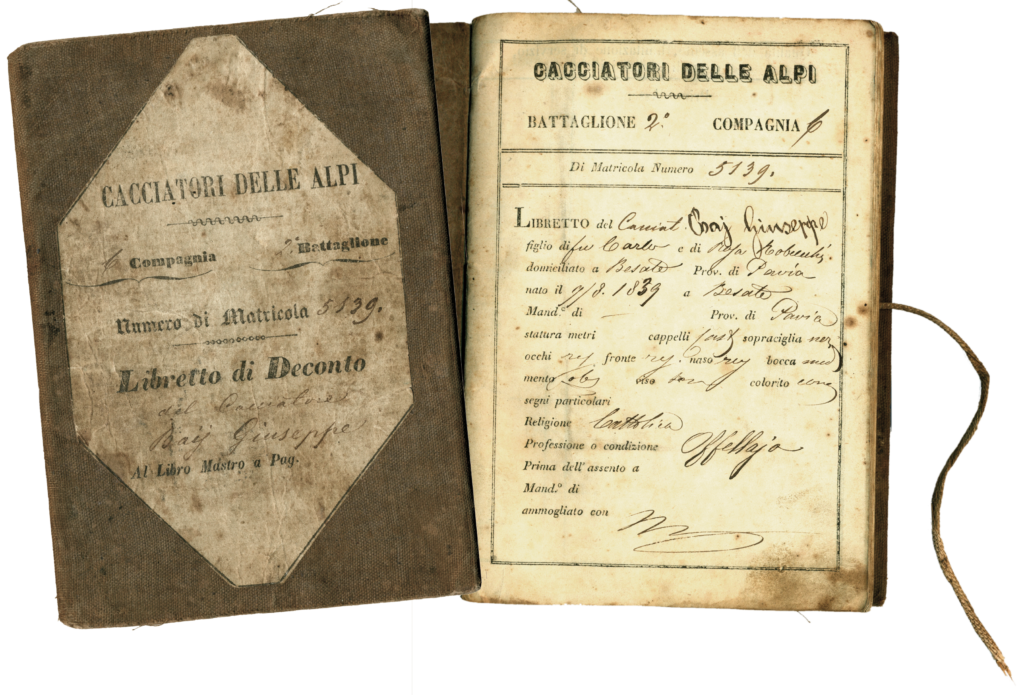 CACCIATORI DELLE ALPI
6 Compagnia 2° Battaglione
Numero di Matricola 5139.
Libretto di Deconto
del
Giuseppe
Al Libro Mastro a Pag.
CACCIATORI DELLE ALPI
BATTAGLIONE 2° COMPAGNIA 6
Di Matricola Numero 5139.
LIBRETTO del Giuseppe
figlio di fu Carlo e di Rosa
domiciliato a Besate Prov. di Pavia
nato il 9/8. 1839 a Besate
Mand.° di — Prov. di Pavia
statura metri cappelli cast sopraciglia
occhi fronte reg. naso reg bocca
mento viso colorito
segni particolari
Religione Cattolica
Professione o condizione Offellajo
Prima dell' assento a
Mand.° di
ammogliato con